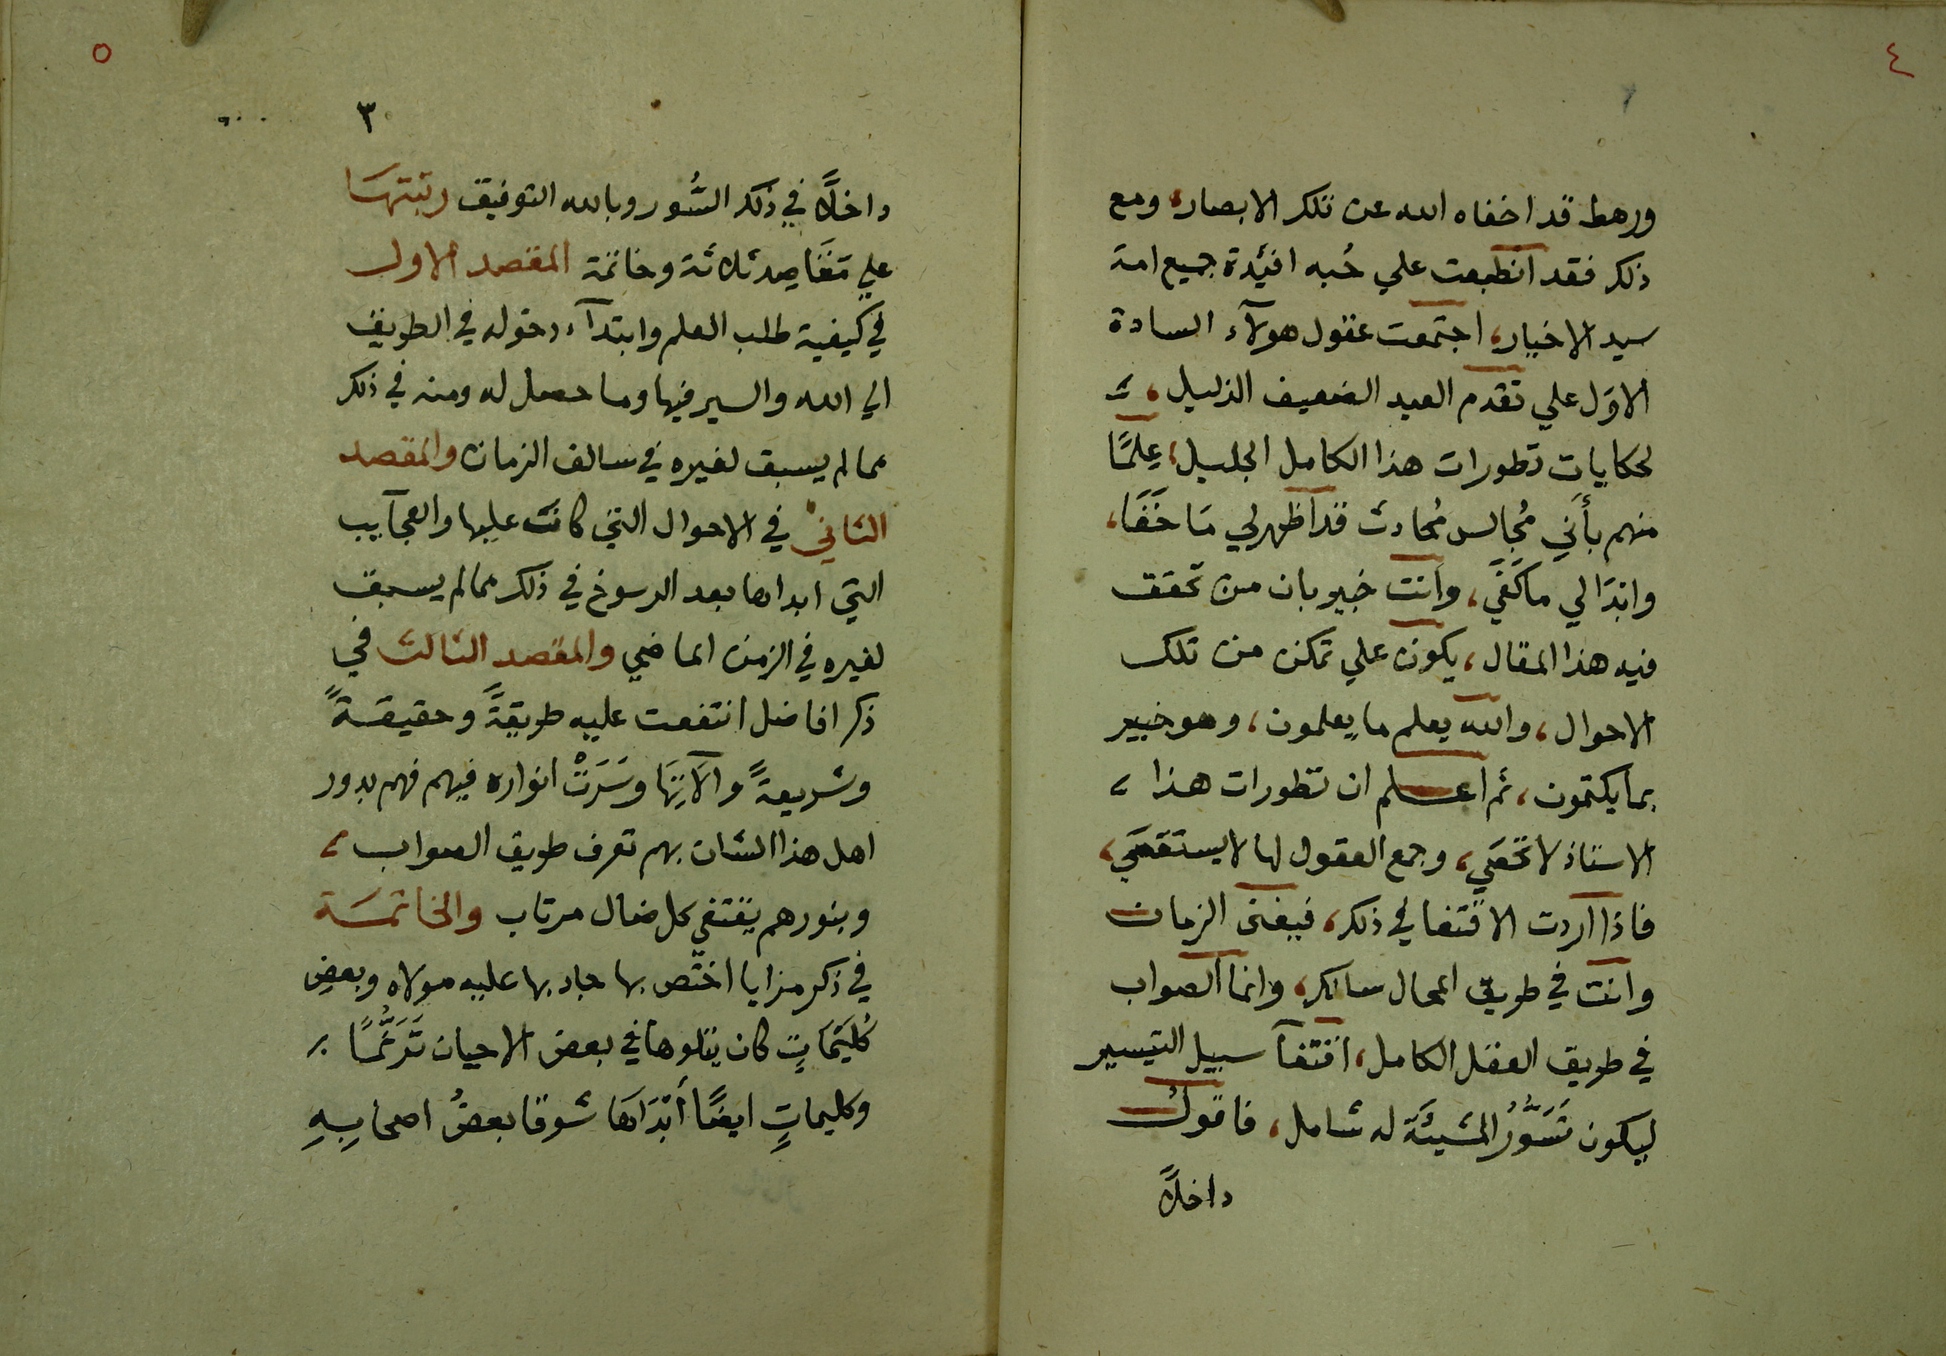 ٤
ورهط قد اخفاه الله عن تلك الابصار، ومع
ذلك فقد انطبعت علي حُبه افئِدة جميع امة
سيد الاخيار، اجتمعت عقول هولآء السادة
الاوَل علي تقدم العبد الضعيف الذليل،
لحكايات تطورات هذا الكامل الجليل، عِلمًا
منهم بأَني مُجالس مُحادث قد اظهر لي مَا خَفَا،
وابدَا لي ما كَفَي، وانت خبير بان من تحقق
فيه هذا المقال، يكون علي تمكن من تلك
الاحوال، والله يعلم ما يعلمون، وهو خبير
بما يكتمون، ثم اعلم ان تطورات هذا
الاستاذ لا تحصَي، وجمع العقول لها لا يستقصَي،
فاذا اردت الاقتفا في ذلك، فيفنى الزمان
وانت في طريق المحال سالك، وانما الصواب
في طريق العقل الكامل، اقتفآ سبيل التيسير
ليكون تَسَوُّرُ المشيئَة له شامل، فاقولُ
داخلاً
٥
٣
داخلاً في ذلك السُّور وبالله التوفيق رتبتهَا
علي مَقَاصِد ثلاثة وخاتمة المقصد الاول
في كيفية طلب العلم وابتدآء دخوله في الطريق
الي الله والسير فيها وما حصل له ومنه في ذلك
مما لم يسبق لغيره في سالف الزمان والمقصد
الثاني في الاحوال التي كانت عليها والعجآيب
التي ابداها بعد الرسوخ في ذلك مما لم يسبق
لغيره في الزمن الماضي والمقصد الثالث في
ذكر افاضل انتفعت عليه طريقةً وحقيقةً
وشريعةً والاَتِهَا وسَرَتْ انواره فيهم فهم بدور
اهل هذا الشان بهم تعرف طريق الصواب،
وبنورهم يقتفي كل ضال مرتاب والخاتمَة
في ذكر مزايا اختّص بها جاد بها عليه مولاه وبعض
كُليَمَاتٍ كان يتلوها في بعض الاحيان تَرَنُّمًا
وكليماتٍ ايضًا أَبْدَاهَا شوقا بعضُ اصحابِهِ